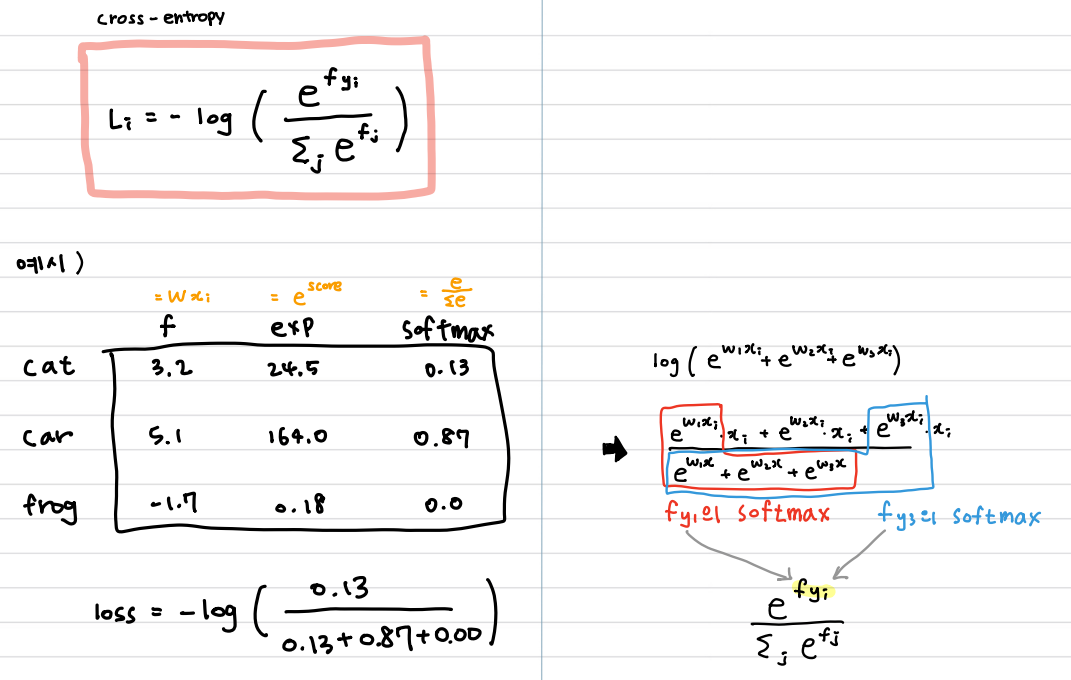 cross-entropy
L_i = - log ( e^{f_{y_i}} / Σ_j e^{f_j} )
예시)
= W x_i = e^{score} = e / Σe
f exp softmax
cat 3.2 24.5 0.13
car 5.1 164.0 0.87
frog -1.7 0.18 0.0
loss = -log ( 0.13 / 0.13+0.87+0.00 )
log ( e^{w_1x_i} + e^{w_2x_i} + e^{w_3x_i} )
➡ e^{w_1x_i}·x_i + e^{w_2x_i}·x_i + e^{w_3x_i}·x_i / e^{w_1x} + e^{w_2x} + e^{w_3x}
f_{y_1}의 softmax f_{y_3}의 softmax
e^{f_{y_i}} / Σ_j e^{f_j}